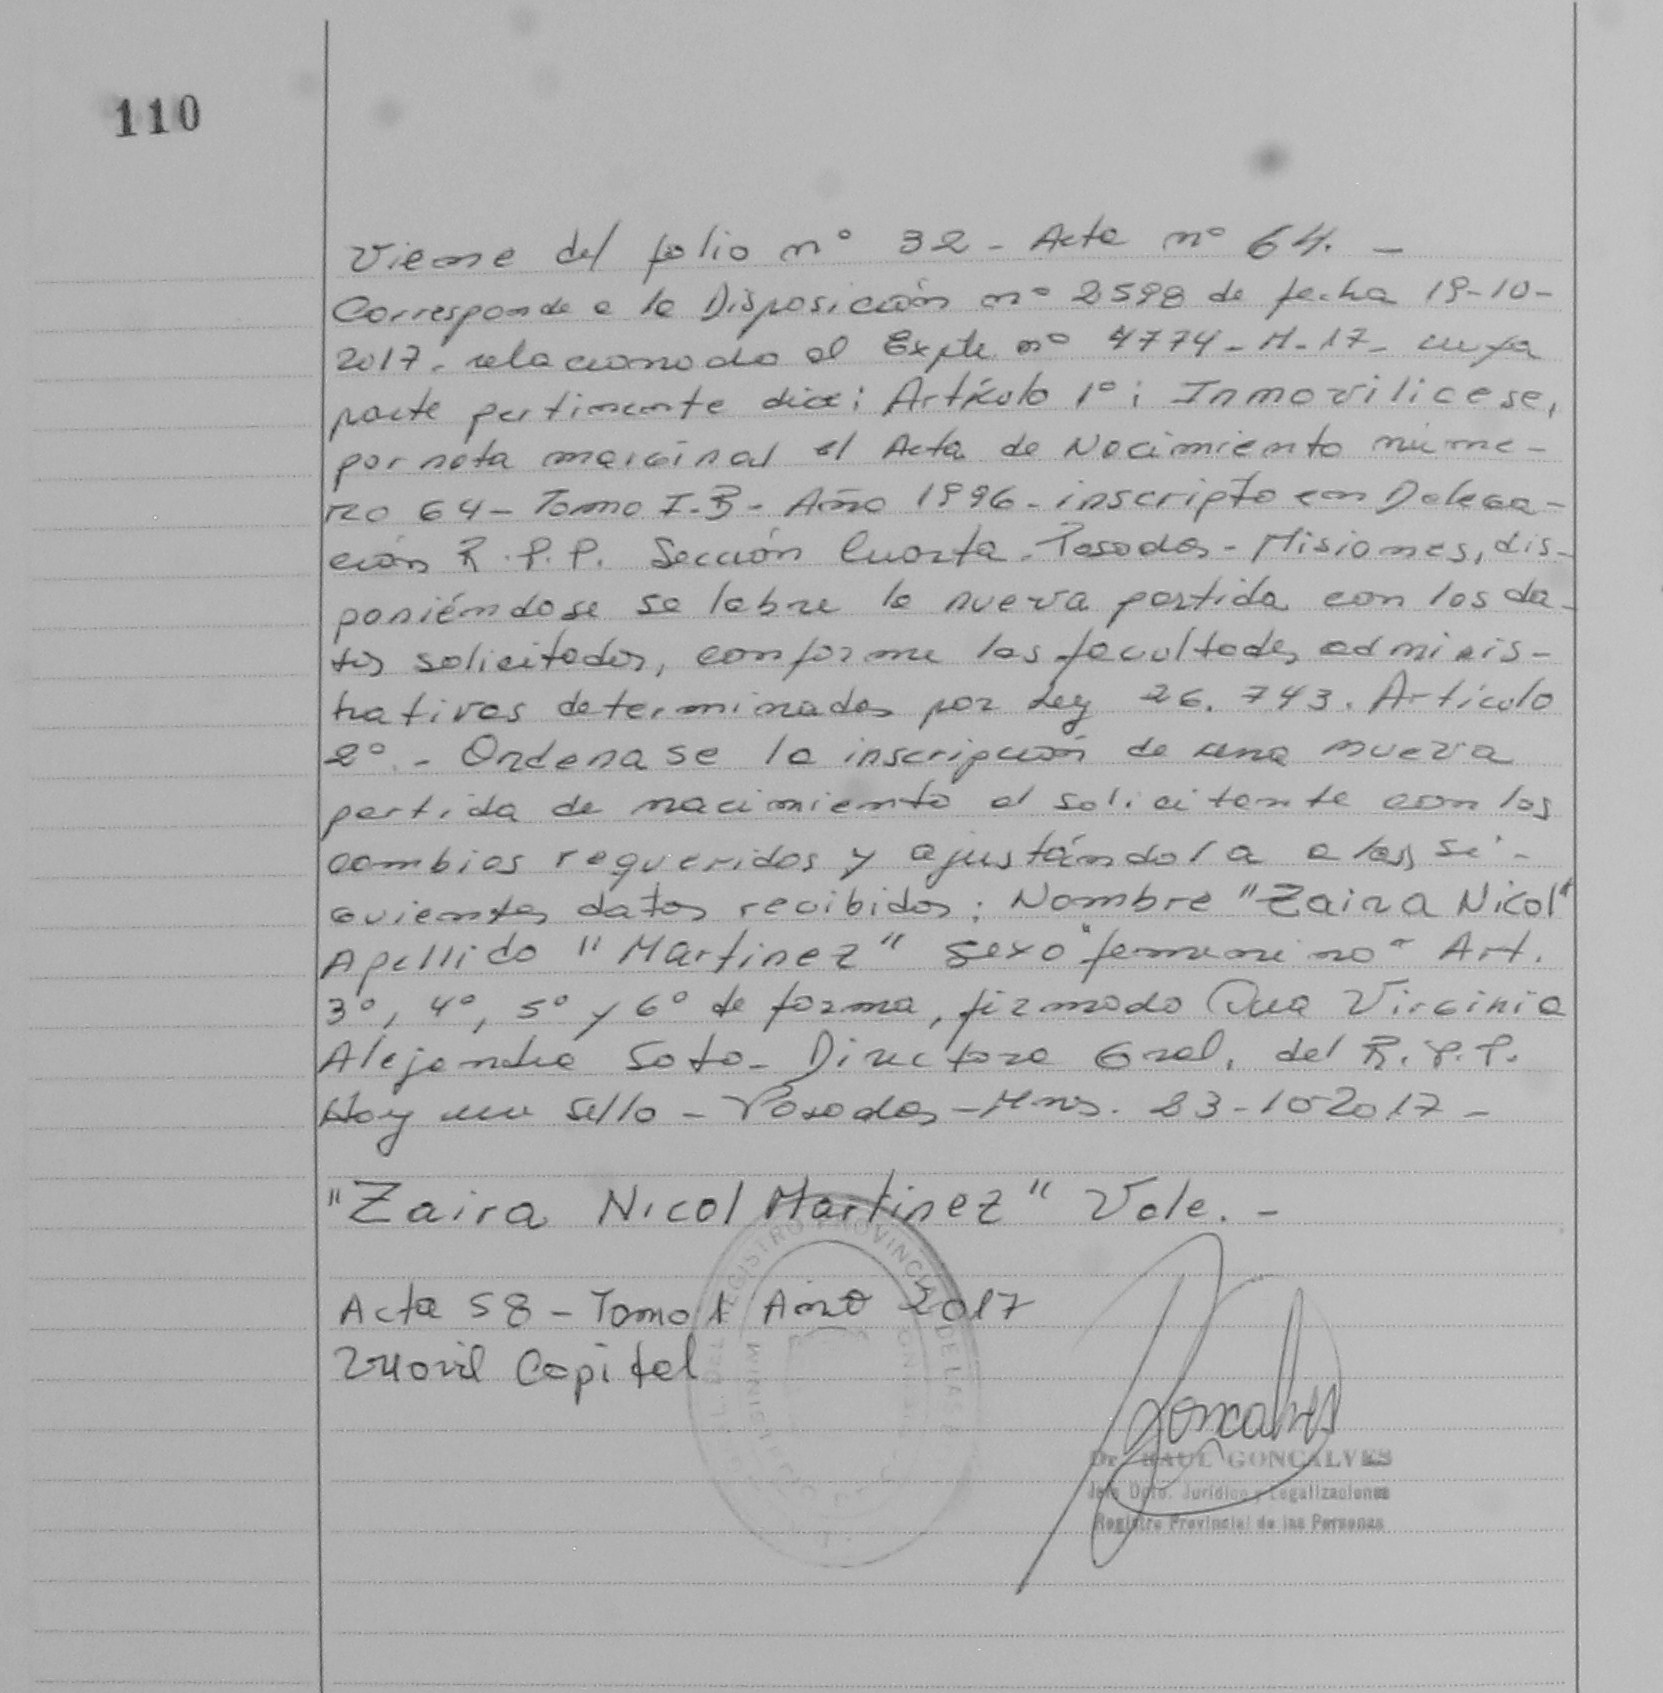 110
Viene del folio nº 32 - Acta nº 64. -
Corresponde a la Disposición nº 2598 de fecha 19-10-
2017. relacionado al Expte nº 4774-M-17- cuya
parte pertinente dice: Artículo 1º: Inmovilicese,
por nota marginal el Acta de Nacimiento núme-
ro 64 - Tomo I-B - Año 1996 - inscripto en Delega-
ción R.P.P. Sección Cuarta - Posadas - Misiones, dis-
poniéndose se labre la nueva partida con los da-
tos solicitados, conforme las facultades adminis-
trativas determinadas por Ley 26.743. Artículo
2º. - Ordenase la inscripción de una nueva
partida de nacimiento al solicitante con los
cambios requeridos y ajustándola a los si-
guientes datos recibidos: Nombre "Zaira Nicol"
Apellido "Martinez" sexo "femenino" Art.
3º, 4º, 5º y 6º de forma, firmado Dra Virginia
Alejandra Soto - Directora Gral. del R.P.P.
Hay un sello - Posadas - Mns. 23-10 2017 -
"Zaira Nicol Martinez" Vale. -
Acta 58 - Tomo 1 Año 2017
Movil Capital
Goncalves
Dr. RAUL GONCALVES
Jefe Dpto. Jurídico y Legalizaciones
Registro Provincial de las Personas